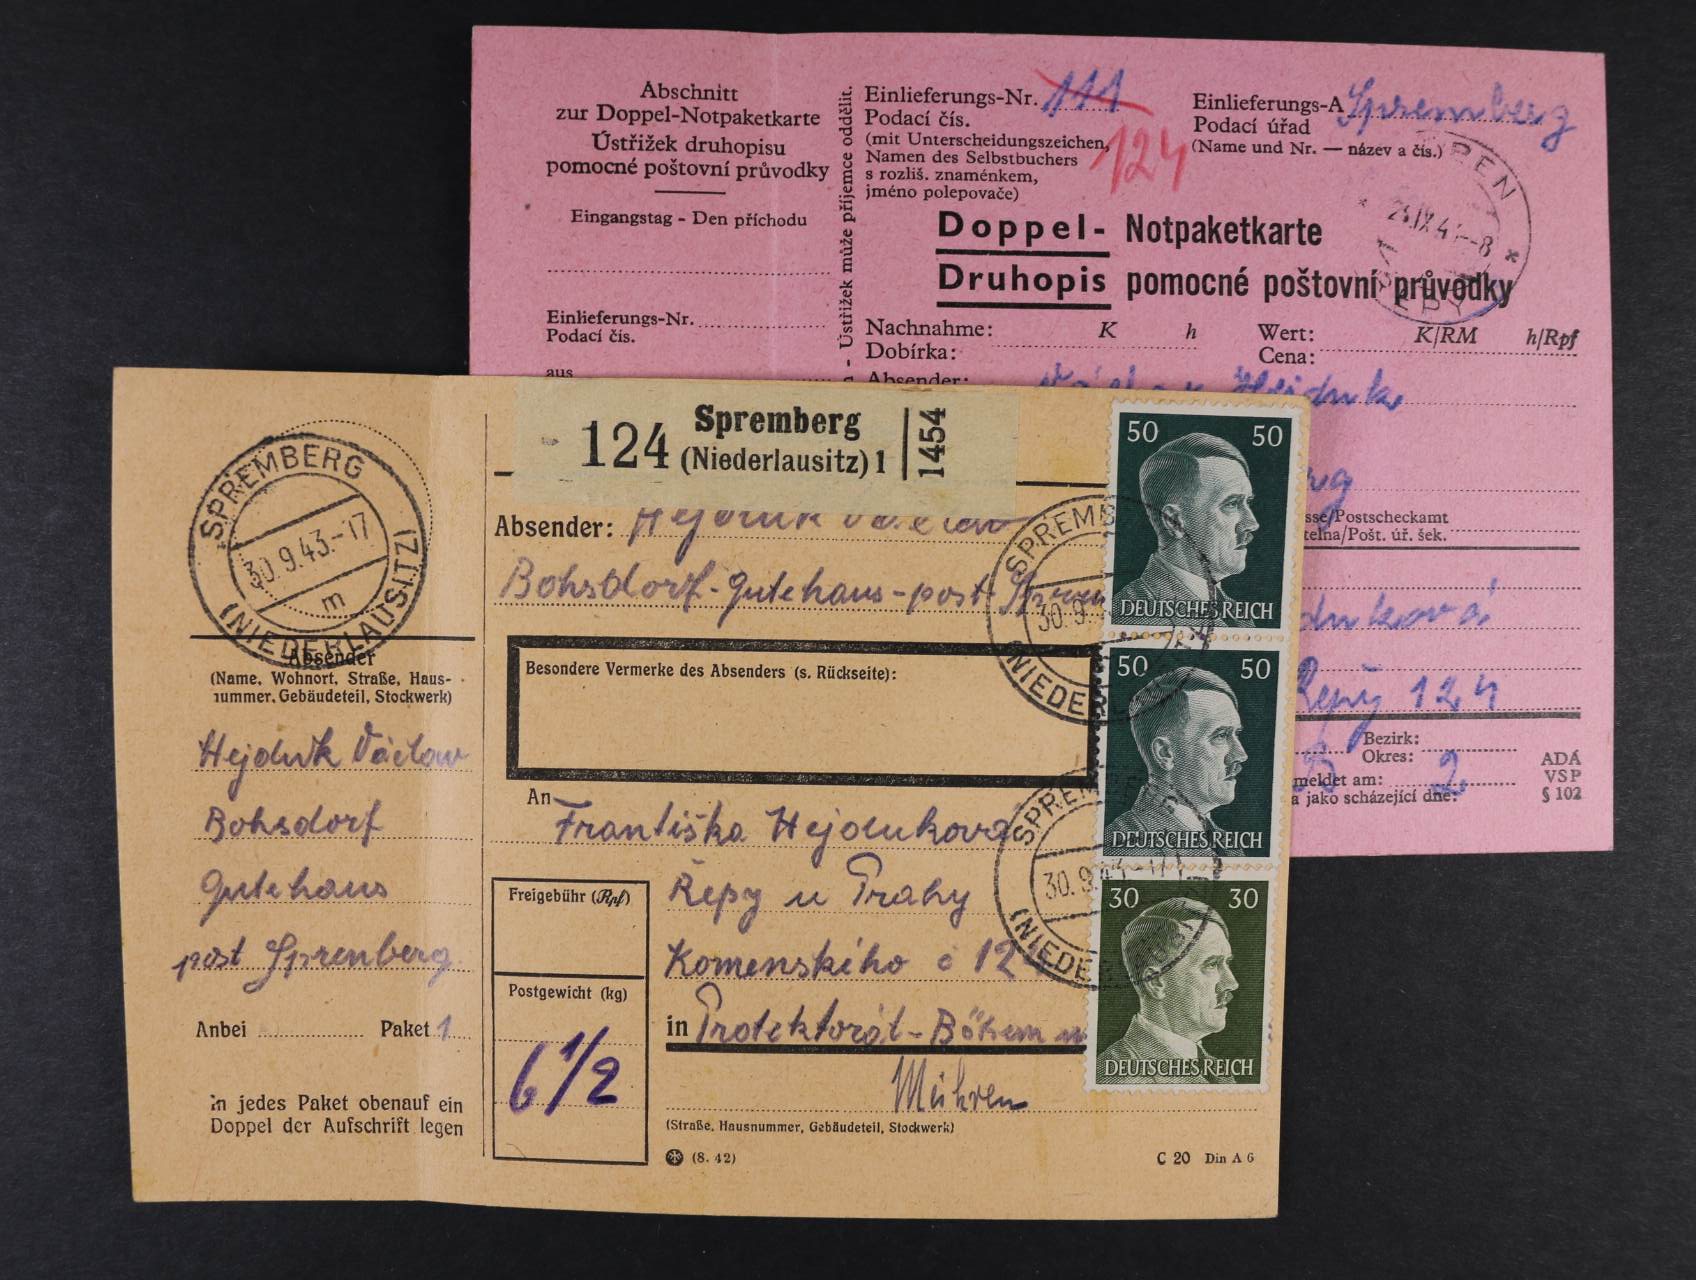 Abschnitt
zur Doppel-Notpaketkarte
Ústřižek druhopisu
pomocné poštovní průvodky
Eingangstag - Den příchodu
Einlieferungs-Nr.
Podací čís.
aus
- Ústřižek může příjemce oddělit.
Einlieferungs-Nr. 111
Podací čís. 124
(mit Unterscheidungszeichen,
Namen des Selbstbuchers
s rozliš. znaménkem,
jméno polepovače)
Einlieferungs-A Spremberg
Podací úřad
(Name und Nr. — název a čís.)
Doppel- Notpaketkarte
Druhopis pomocné poštovní průvodky
Nachnahme: K h
Dobírka:
Wert: K/RM h/Rpf
Cena:
Absender: Hejduk
se/Postscheckamt
telna/Pošt. úř. šek.
Řepy 124
Bezirk:
Okres: 2
meldet am:
a jako scházející dne:
ADÁ
VSP
§ 102
124 Spremberg
(Niederlausitz) 1
1454
SPREMBERG
30.9.43.-17
m
(NIEDERLAUSITZ)
Absender
(Name, Wohnort, Straße, Haus-
nummer, Gebäudeteil, Stockwerk)
Hejduk Václav
Bohsdorf
Gutehaus
post Spremberg
Anbei Paket 1
In jedes Paket obenauf ein
Doppel der Aufschrift legen
Absender: Hejduk Václav
Bohsdorf-Gutehaus-post Sprem
Besondere Vermerke des Absenders (s. Rückseite):
An Františka Hejduková
Řepy u Prahy
Komenského č 12
in Protektorát-Böhem u
Mähren
(Straße, Hausnummer, Gebäudeteil, Stockwerk)
Freigebühr (Rpf)
Postgewicht (kg)
6 1/2
(8. 42)
C 20 Din A 6
50 50
DEUTSCHES REICH
50 50
DEUTSCHES REICH
30 30
DEUTSCHES REICH